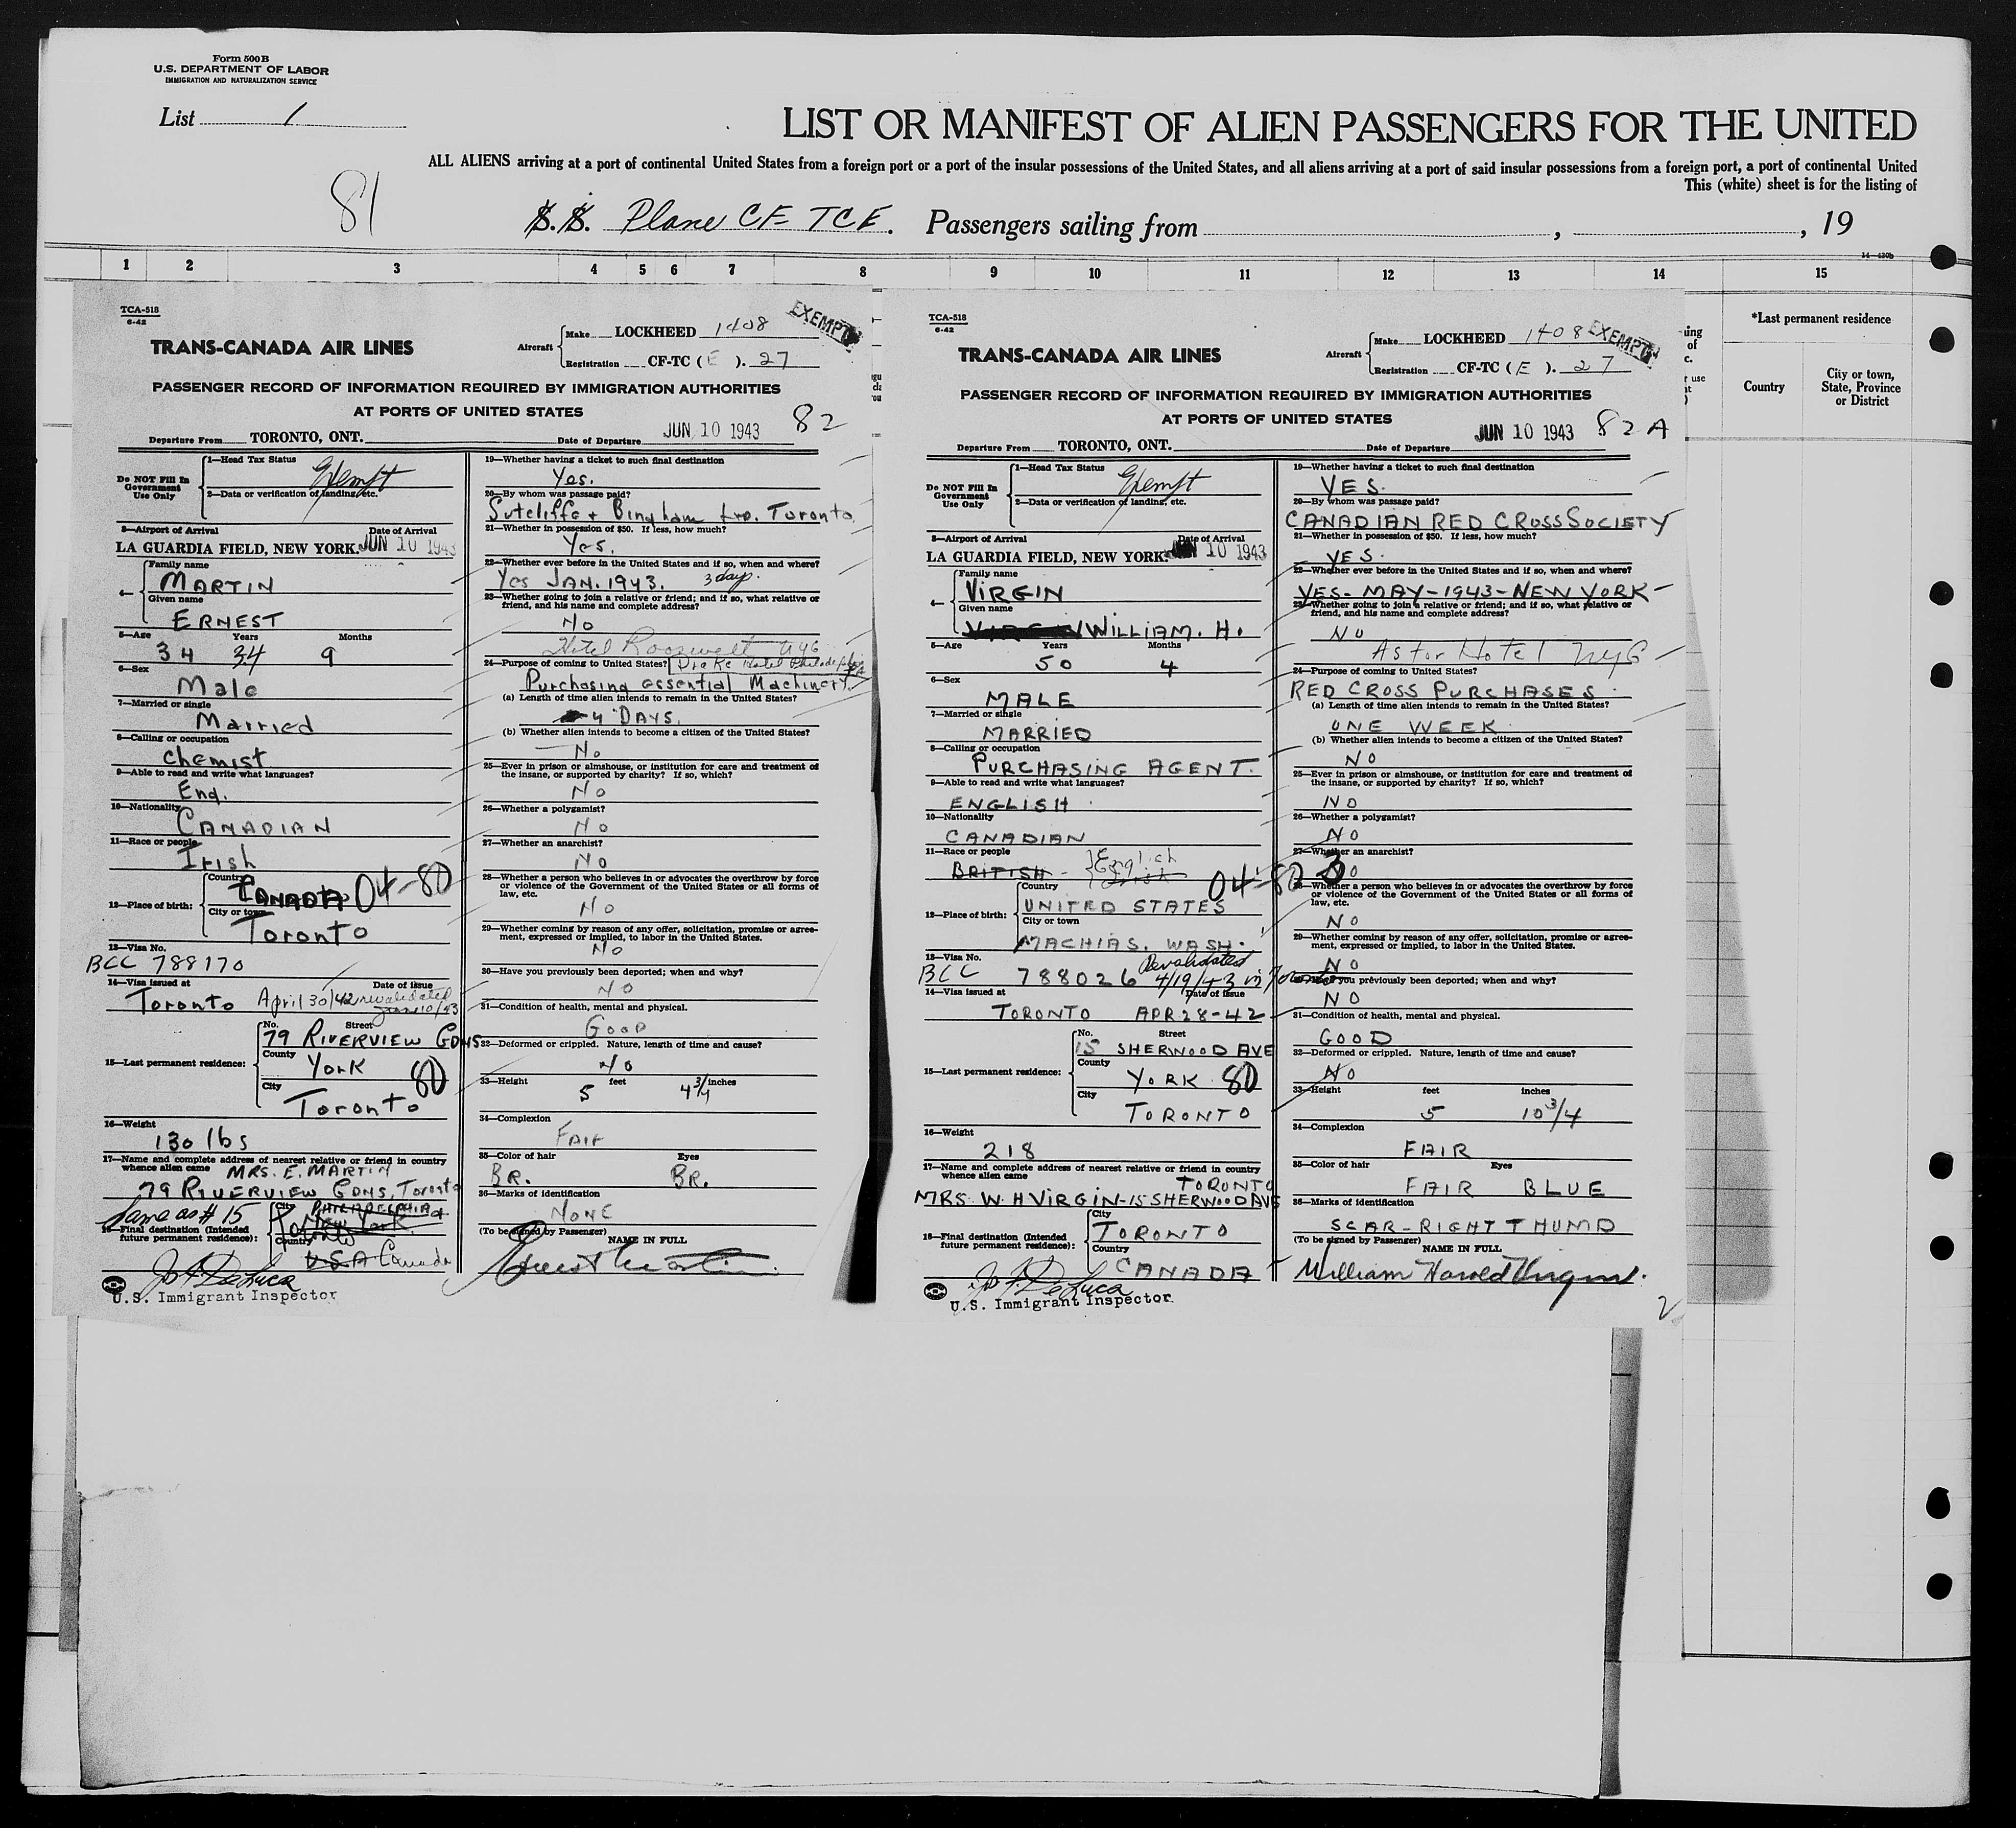 Form 500B
U.S. DEPARTMENT OF LABOR
IMMIGRATION AND NATURALIZATION SERVICE
List 1
LIST OR MANIFEST OF ALIEN PASSENGERS FOR THE UNITED
ALL ALIENS arriving at a port of continental United States from a foreign port or a port of the insular possessions of the United States, and all aliens arriving at a port of said insular possessions from a foreign port, a port of continental United
This (white) sheet is for the listing of
81
S.S. Plane CF-TCE. Passengers sailing from , , 19
14—430b
1 2 3 4 5 6 7 8 9 10 11 12 13 14 15
*Last permanent residence
Country
City or town, State, Province or District
TCA-518
6-42
TRANS-CANADA AIR LINES
Aircraft
Make LOCKHEED 1408
EXEMPT
Registration CF-TC (E). 27
PASSENGER RECORD OF INFORMATION REQUIRED BY IMMIGRATION AUTHORITIES
AT PORTS OF UNITED STATES
82
Departure From TORONTO, ONT. Date of Departure JUN 10 1943
Do NOT Fill In Government Use Only
1—Head Tax Status
Exempt
2—Data or verification of landing, etc.
3—Airport of Arrival Date of Arrival
LA GUARDIA FIELD, NEW YORK. JUN 10 1943
4—
Family name
MARTIN
Given name
ERNEST
5—Age Years Months
34 34 9
6—Sex
Male
7—Married or single
Married
8—Calling or occupation
Chemist
9—Able to read and write what languages?
Eng.
10—Nationality
CANADIAN
11—Race or people
Irish
12—Place of birth:
Country
CANADA 04-80
City or town
Toronto
13—Visa No.
BCC 788170
14—Visa issued at Date of issue
Toronto April 30/42 revalidated June 10/43
15—Last permanent residence:
No. Street
79 RIVERVIEW GDNS
County
York 80
City
Toronto
16—Weight
130 lbs
17—Name and complete address of nearest relative or friend in country whence alien came
MRS. E. MARTIN
79 RIVERVIEW GDNS, Toronto
Same as # 15
18—Final destination (Intended future permanent residence):
City
PHILADELPHIA
New York
Toronto
Country
USA Canada
Jos F DeLuca
U.S. Immigrant Inspector
19—Whether having a ticket to such final destination
Yes.
20—By whom was passage paid?
Sutcliffe & Bingham Ltd. Toronto
21—Whether in possession of $50. If less, how much?
Yes.
22—Whether ever before in the United States and if so, when and where?
Yes JAN. 1943. 3 days.
23—Whether going to join a relative or friend; and if so, what relative or friend, and his name and complete address?
No
Hotel Roosevelt NYC
24—Purpose of coming to United States? Drake Hotel Philadelphia Pa
Purchasing essential Machinery.
(a) Length of time alien intends to remain in the United States?
4 DAYS.
(b) Whether alien intends to become a citizen of the United States?
No
25—Ever in prison or almshouse, or institution for care and treatment of the insane, or supported by charity? If so, which?
No
26—Whether a polygamist?
No
27—Whether an anarchist?
No
28—Whether a person who believes in or advocates the overthrow by force or violence of the Government of the United States or all forms of law, etc.
No
29—Whether coming by reason of any offer, solicitation, promise or agreement, expressed or implied, to labor in the United States.
No
30—Have you previously been deported; when and why?
NO
31—Condition of health, mental and physical.
GOOD
32—Deformed or crippled. Nature, length of time and cause?
No
33—Height feet inches
5 4 3/4
34—Complexion
FAIR
35—Color of hair Eyes
BR. BR.
36—Marks of identification
NONE
(To be signed by Passenger) NAME IN FULL
Ernest Martin
TCA-518
6-42
TRANS-CANADA AIR LINES
Aircraft
Make LOCKHEED 1408
EXEMPT
Registration CF-TC (E). 27
PASSENGER RECORD OF INFORMATION REQUIRED BY IMMIGRATION AUTHORITIES
AT PORTS OF UNITED STATES
82 A
Departure From TORONTO, ONT. Date of Departure JUN 10 1943
Do NOT Fill In Government Use Only
1—Head Tax Status
Exempt
2—Data or verification of landing, etc.
3—Airport of Arrival Date of Arrival
LA GUARDIA FIELD, NEW YORK. JUN 10 1943
4—
Family name
VIRGIN
Given name
VIRGIN WILLIAM. H.
5—Age Years Months
50 4
6—Sex
MALE
7—Married or single
MARRIED
8—Calling or occupation
PURCHASING AGENT.
9—Able to read and write what languages?
ENGLISH
10—Nationality
CANADIAN
11—Race or people
BRITISH - English
12—Place of birth:
Country
UNITED STATES 04-80 3
City or town
MACHIAS. WASH.
13—Visa No. Revalidated
BCC 788026 4/19/43 in Toronto
14—Visa issued at Date of issue
TORONTO APR 28-42
15—Last permanent residence:
No. Street
15 SHERWOOD AVE
County
YORK 80
City
TORONTO
16—Weight
218
17—Name and complete address of nearest relative or friend in country whence alien came
TORONTO
MRS. W. H VIRGIN-15 SHERWOOD AVE
18—Final destination (Intended future permanent residence):
City
TORONTO
Country
CANADA
Jos F. DeLuca
U.S. Immigrant Inspector
19—Whether having a ticket to such final destination
YES.
20—By whom was passage paid?
CANADIAN RED CROSS SOCIETY
21—Whether in possession of $50. If less, how much?
YES.
22—Whether ever before in the United States and if so, when and where?
YES- MAY-1943-NEW YORK-
23—Whether going to join a relative or friend; and if so, what relative or friend, and his name and complete address?
NO
Astor Hotel NYC
24—Purpose of coming to United States?
RED CROSS PURCHASES.
(a) Length of time alien intends to remain in the United States?
ONE WEEK.
(b) Whether alien intends to become a citizen of the United States?
NO
25—Ever in prison or almshouse, or institution for care and treatment of the insane, or supported by charity? If so, which?
NO
26—Whether a polygamist?
NO
27—Whether an anarchist?
NO
28—Whether a person who believes in or advocates the overthrow by force or violence of the Government of the United States or all forms of law, etc.
NO
29—Whether coming by reason of any offer, solicitation, promise or agreement, expressed or implied, to labor in the United States.
NO
you previously been deported; when and why?
NO
31—Condition of health, mental and physical.
GOOD
32—Deformed or crippled. Nature, length of time and cause?
NO
33—Height feet inches
5 10 3/4
34—Complexion
FAIR
35—Color of hair Eyes
FAIR BLUE
36—Marks of identification
SCAR-RIGHT THUMB
(To be signed by Passenger) NAME IN FULL
William Harold Virgin.
2